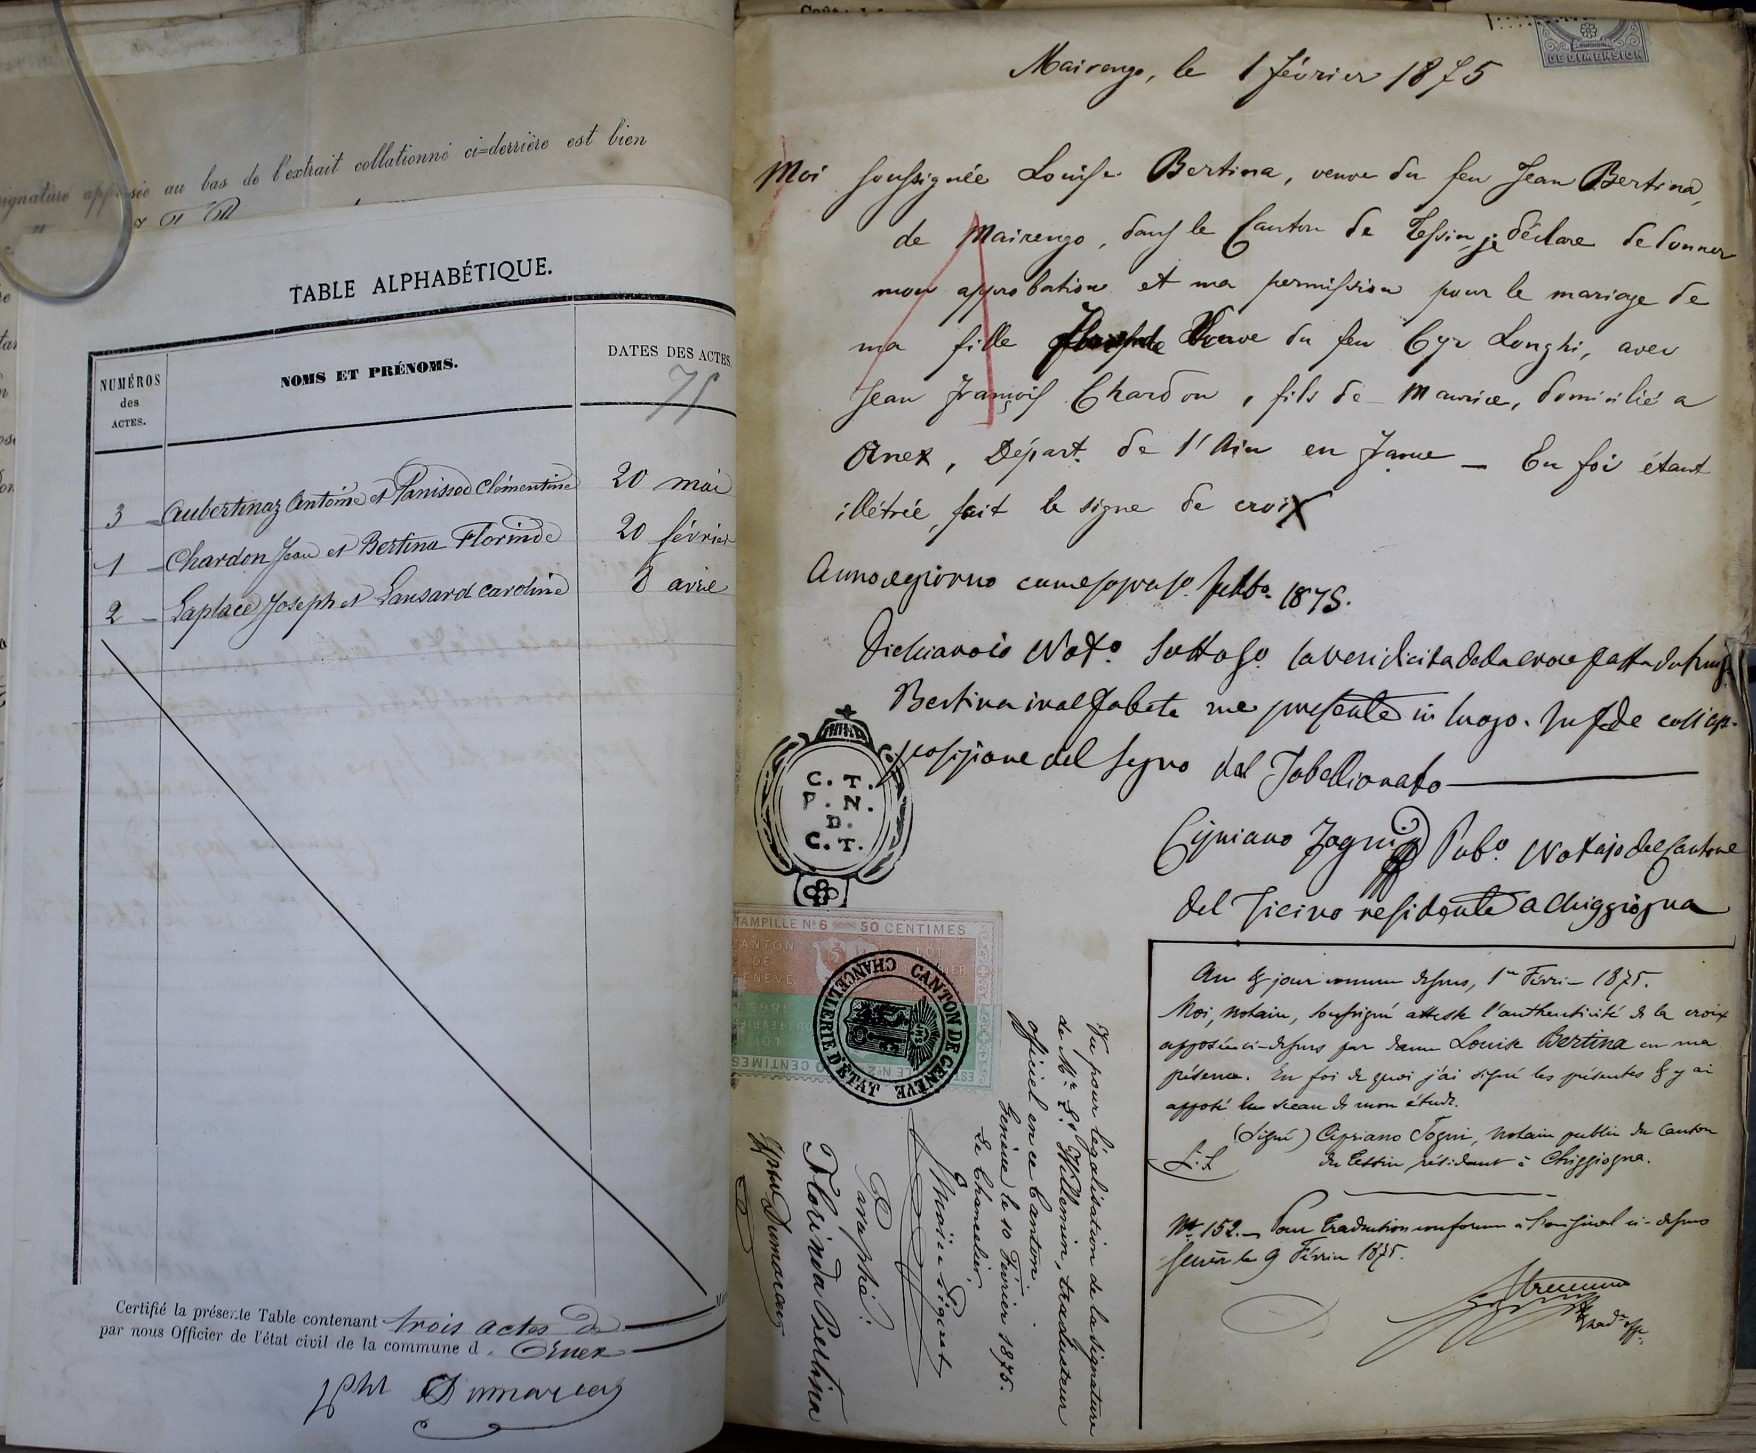 signature apposée au bas de l'extrait collationné ci=derrière est bien
TABLE ALPHABÉTIQUE.
NUMÉROS
des
ACTES.
NOMS ET PRÉNOMS.
DATES DES ACTES
75
3 Aubertinaz Antoine et Panissod Clémentine 20 mai
1 Chardon Jean et Bertina Florinde 20 février
2 Laplace Joseph et Lansard Caroline 8 avril
Certifié la présente Table contenant trois actes
par nous Officier de l'état civil de la commune d Ornex
Dumarcey
DE DIMENSION
Mairengo, le 1 février 1875
Moi soussignée Louise Bertina, veuve du feu Jean Bertina,
de Mairengo, dans le Canton de Tessin, je déclare de donner
mon approbation et ma permission pour le mariage de
ma fille Veuve du feu Cyr Longhi, avec
Jean François Chardon, fils de Maurice, domicilié a
Ornex, Départ. de l'Ain en France _ En foi étant
illétrée, fait le signe de croix
Anno e giorno come sopra 1875.
Dichiaro io Not.o sottos.o la veridicita della croce fatta da
Bertina inalfabeta me presente in luogo. In fede coll'ap-
posizione del segno del Tabellionato
C. T.
P. N.
D.
C. T.
Cipriano Togni Pub.o Notajo del Cantone
del Ticino residente a Chiggiogna
ESTAMPILLE No 6 50 CENTIMES
CANTON
DE
GENEVE
CANTON DE GENEVE
CHANCELLERIE D'ETAT
An & jour comme dessus, 1er Févri_ 1875.
Moi, notaire, soussigné atteste l'authenticité de la croix
apposée ci-dessus par dame Louise Bertina en ma
présence. En foi de quoi j'ai signé les présentes & y ai
apposé le sceau de mon étude.
(Signé) Cipriano Togni, notaire public du Canton
L.S. du Tessin résidant à Chiggiogna.
No. 152._ Pour traduction conforme à l'original ci-dessus
Genève le 9 Février 1875.
Vu pour légalisation de la signature
de Mr. Ls. Willemin, traducteur
officiel en ce Canton.
Genève le 10 Février 1875.
Le Chancelier,
Moïse Piguet
Paraphé.
Florinda Bertina
Dumarcey